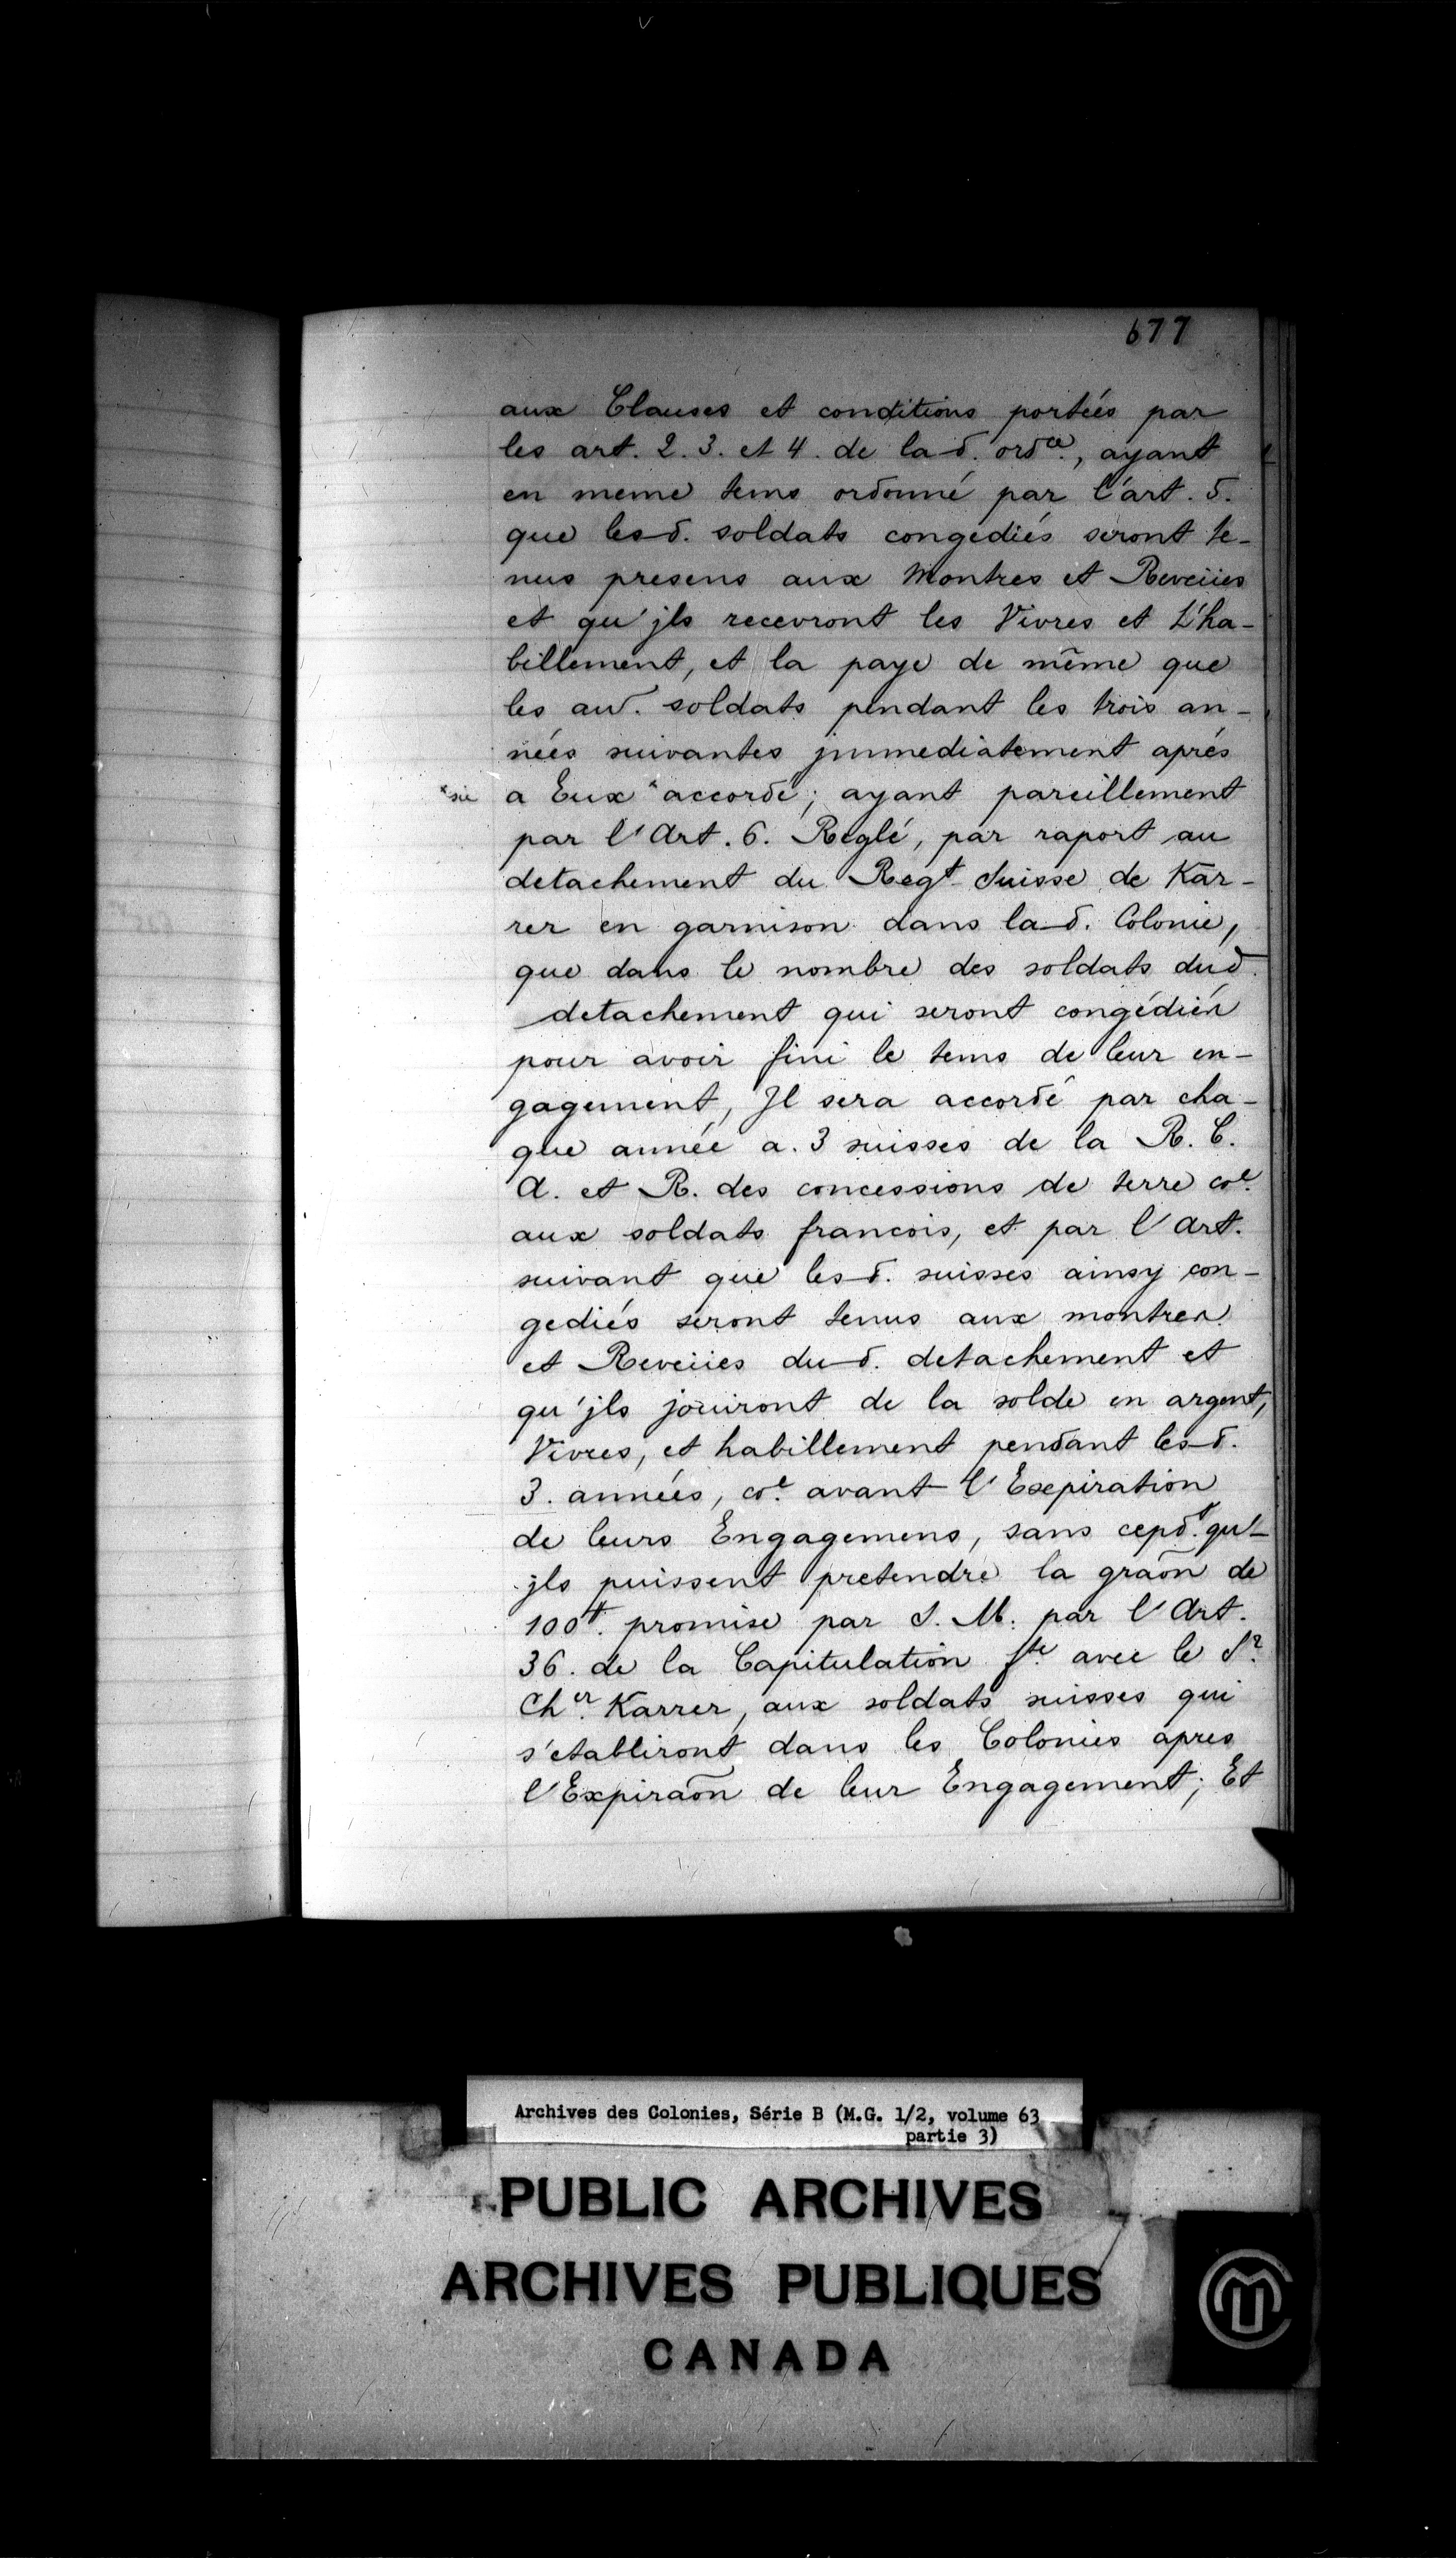 677
aux Clauses et conditions portées par
les art. 2. 3. et 4. de la d. ordce, ayant
en meme tems ordonné par l'art. 5.
que les d. soldats congediés seront te-
nus presens aux Montres et Reveües
et qu'jls recevront les Vivres et L'ha-
billement, et la paye de même que
les au. soldats pendant les trois an-
nées suivantes jmmediatement aprés
*sic a Eux * accordé; ayant pareillement
par l'Art. 6. Reglé, par raport au
detachement du Regt Suisse de Kar-
rer en garnison dans la d. Colonie,
que dans le nombre des soldats dud.
detachement qui seront congédiés
pour avoir fini le tems de leur en-
gagement, Jl sera accordé par cha-
que année a. 3 suisses de la R. C.
A. et R. des concessions de terre coe.
aux soldats francois, et par l'Art.
suivant que les d. suisses ainsy con-
gediés seront tenus aux montres
et Reveües du d. detachement et
qu'jls jouiront de la solde en argent,
Vivres, et habillement pendant les d.
3. années, coe. avant l'Expiration
de leurs Engagemens, sans cepdt. qu'-
jls puissent pretendre la graõn de
100tt. promise par S. M. par l'Art.
36. de la Capitulation fte. avec le Sr.
Cher. Karrer, aux soldats suisses qui
s'etabliront dans les Colonies apres
l'Expiraõn de leur Engagement; Et
Archives des Colonies, Série B (M.G. 1/2, volume 63
partie 3)
PUBLIC ARCHIVES
ARCHIVES PUBLIQUES
CANADA